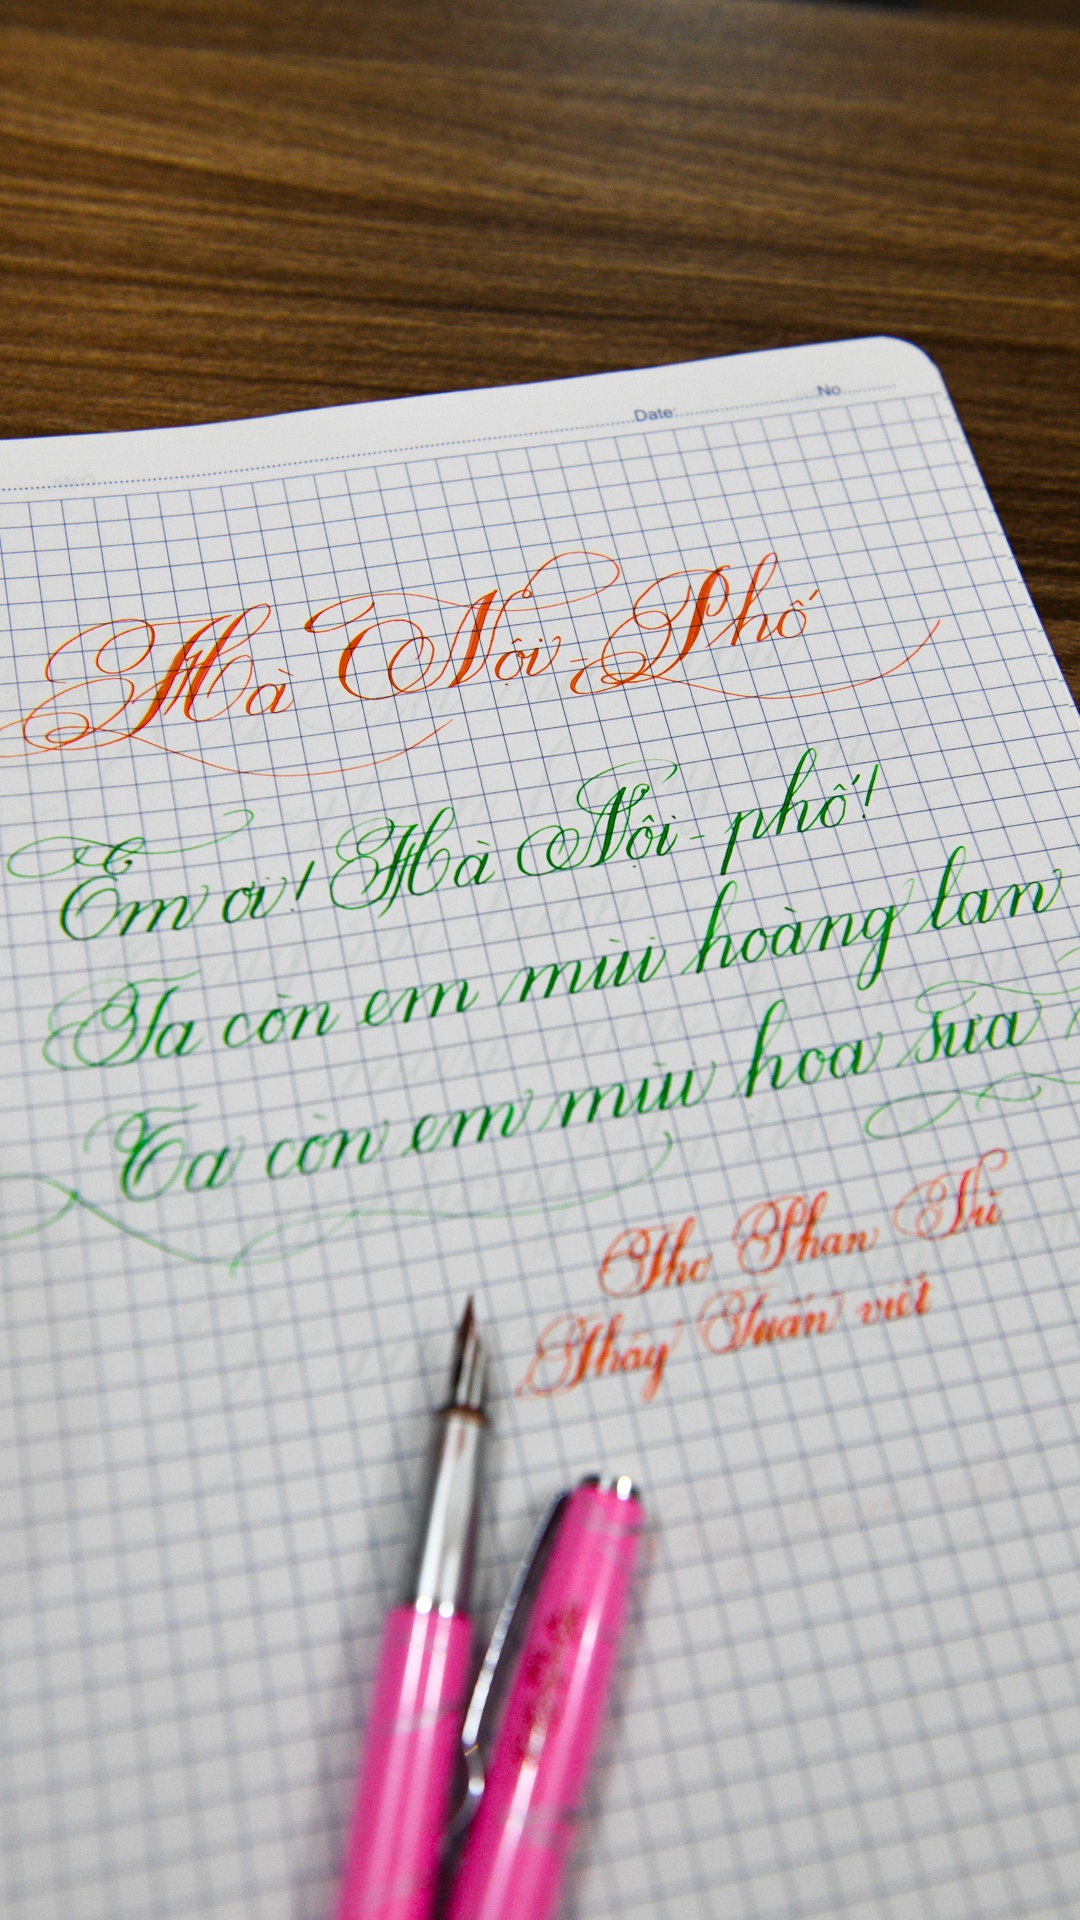 Date No
Hà Nội - Phố
Em ơi! Hà Nội - phố!
Ta còn em mùi hoàng lan
Ta còn em mùi hoa sữa
Thơ Phan Vũ
Thầy Tuấn viết